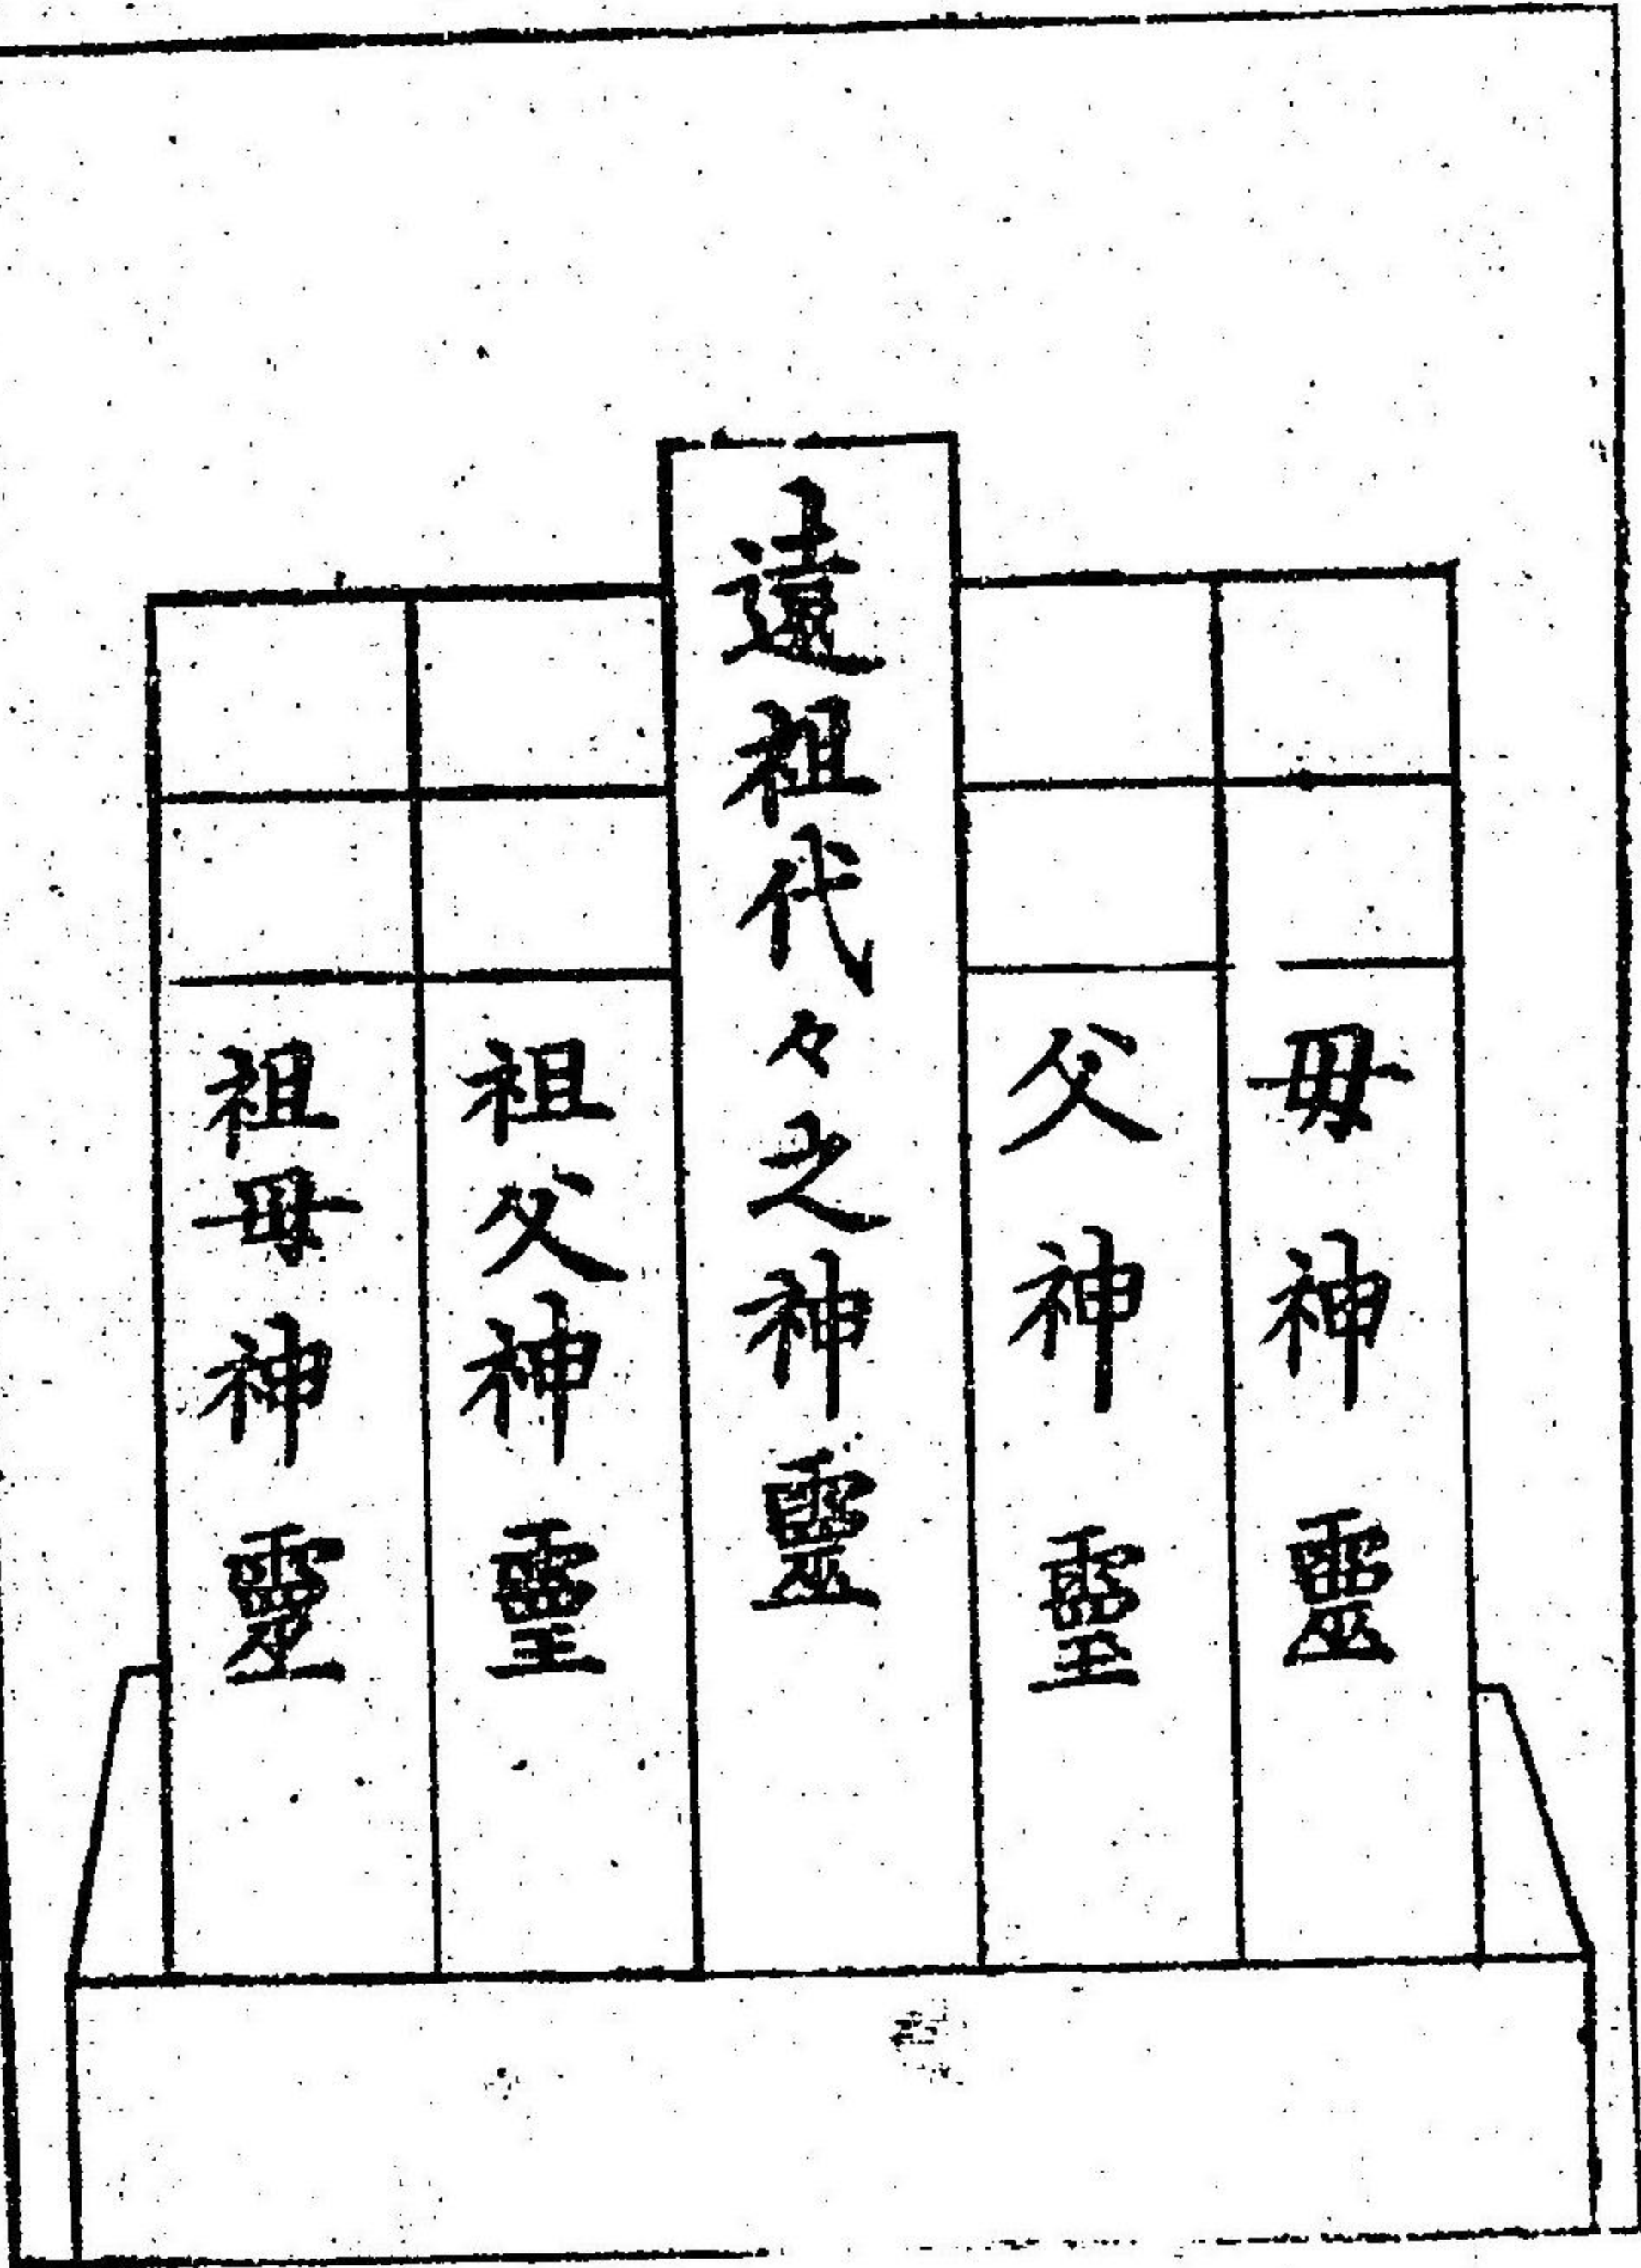 母神靈
父神靈
遠祖代々之神靈
祖父神靈
祖母神靈